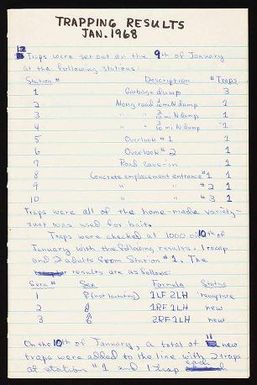 TRAPPING RESULTS
JAN. 1968
12 Traps were set out on the 9th of January
at the following stations:
Station # Description # Traps
1 Garbage dump 3
2 Along road 2/10 mi N dump 1
3 " " 3/10 mi N dump 1
4 " " 5/10 mi N dump 1
5 Overlook #1 1
6 Overlook #2 1
7 Road cave-in 1
8 Concrete emplacement entrance #1 1
9 " " #2 1
10 " " #3 1
Traps were all of the home-made variety-
suet was used for bait.
Traps were checked at 1000 on 10th of
January with the following results. 1 recap
and 2 adults from Station #1. The
results are as follows:
Sex Formula Status
1 ♀ (not lactating) 1LF 2LH recapture
2 1RF 1LH new
3 2RF 1LH new
On the 10th of January, a total of 11 new
traps were added to the line with 2 traps
at station #1 and 1 trap